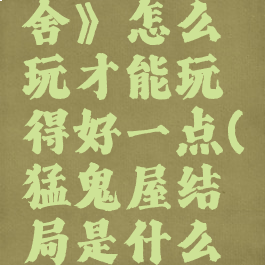 舍》怎么
玩才能玩
得好一点(
猛鬼屋结
局是什么